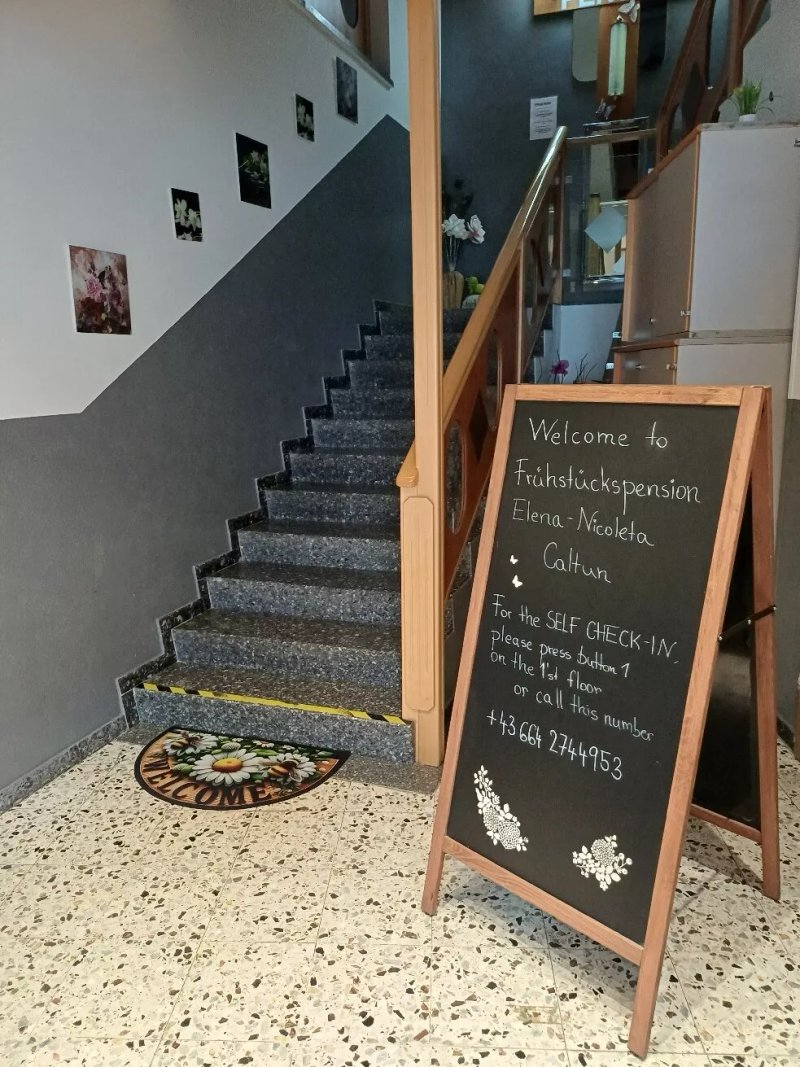 Welcome to
Frühstückspension
Elena-Nicoleta
Caltun
For the SELF CHECK-IN,
please press button 1
on the 1'st floor
or call this number
+43 664 2744953
WELCOME